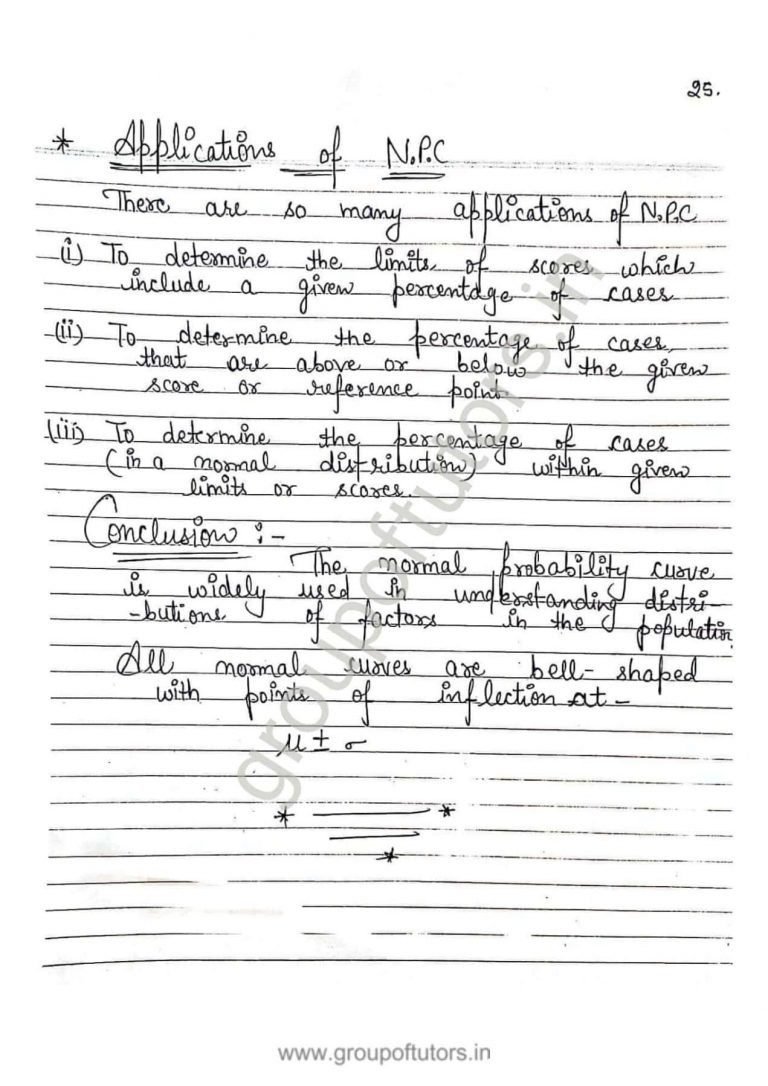 25.
* Applications of N.P.C
There are so many applications of N.P.C
(i) To determine the limits of scores which
include a given percentage of cases
(ii) To determine the percentage of cases,
that are above or below the given
score or reference point
(iii) To determine the percentage of cases
(in a normal distribution) within given
limits or scores.
Conclusion :-
The normal probability curve
is widely used in understanding distri-
-butions of factors in the population
All normal curves are bell-shaped
with points of inflection at -
μ ± σ
* *
*
groupoftutors.in
www.groupoftutors.in